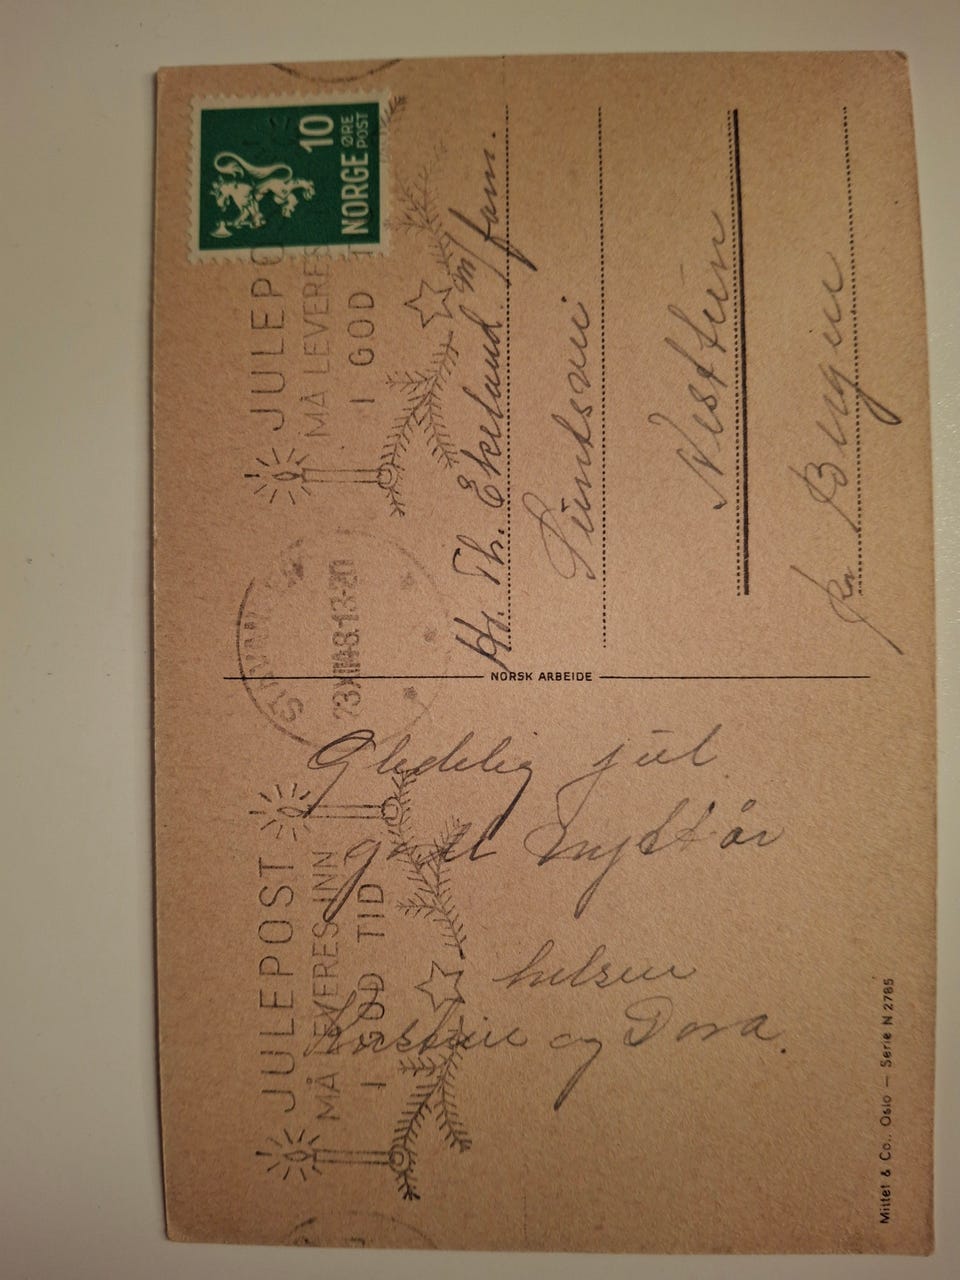 JULEPOST
MÅ LEVERES INN
I GOD TID
STAVANGER
23 XII 48.13-20
JULEPO
MÅ LEVERES
I GOD T
10
ØRE
NORGE POST
Gledelig jul
godt nyttår
hilsen
og Dora.
NORSK ARBEIDE
Hr. Th. Ekeland m/fam.
Nesttun
pr Bergen
Mittet & Co., Oslo — Serie N 2785